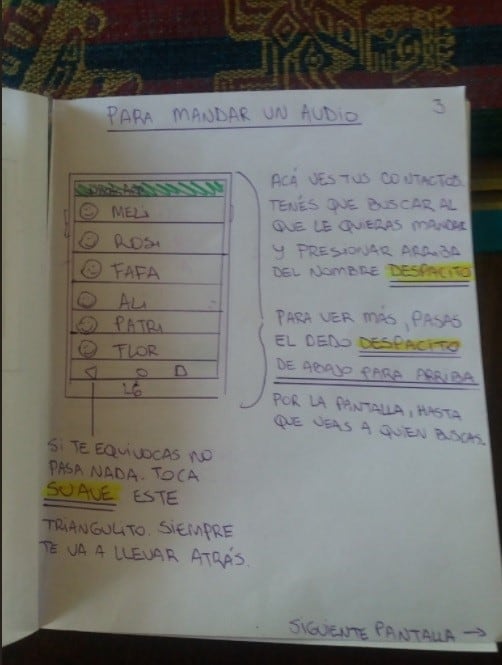 PARA MANDAR UN AUDIO
3
MELI
ROSI
FAFA
ALI
PATRI
FLOR
LG
ACÁ VES TUS CONTACTOS.
TENÉS QUE BUSCAR AL
QUE LE QUIERAS MANDAR
Y PRESIONAR ARRIBA
DEL NOMBRE DESPACITO
PARA VER MÁS, PASAS
EL DEDO DESPACITO
DE ABAJO PARA ARRIBA
POR LA PANTALLA, HASTA
QUE VEAS A QUIEN BUSCAS.
SI TE EQUIVOCAS NO
PASA NADA. TOCA
SUAVE ESTE
TRIANGULITO. SIEMPRE
TE VA A LLEVAR ATRÁS.
SIGUIENTE PANTALLA →